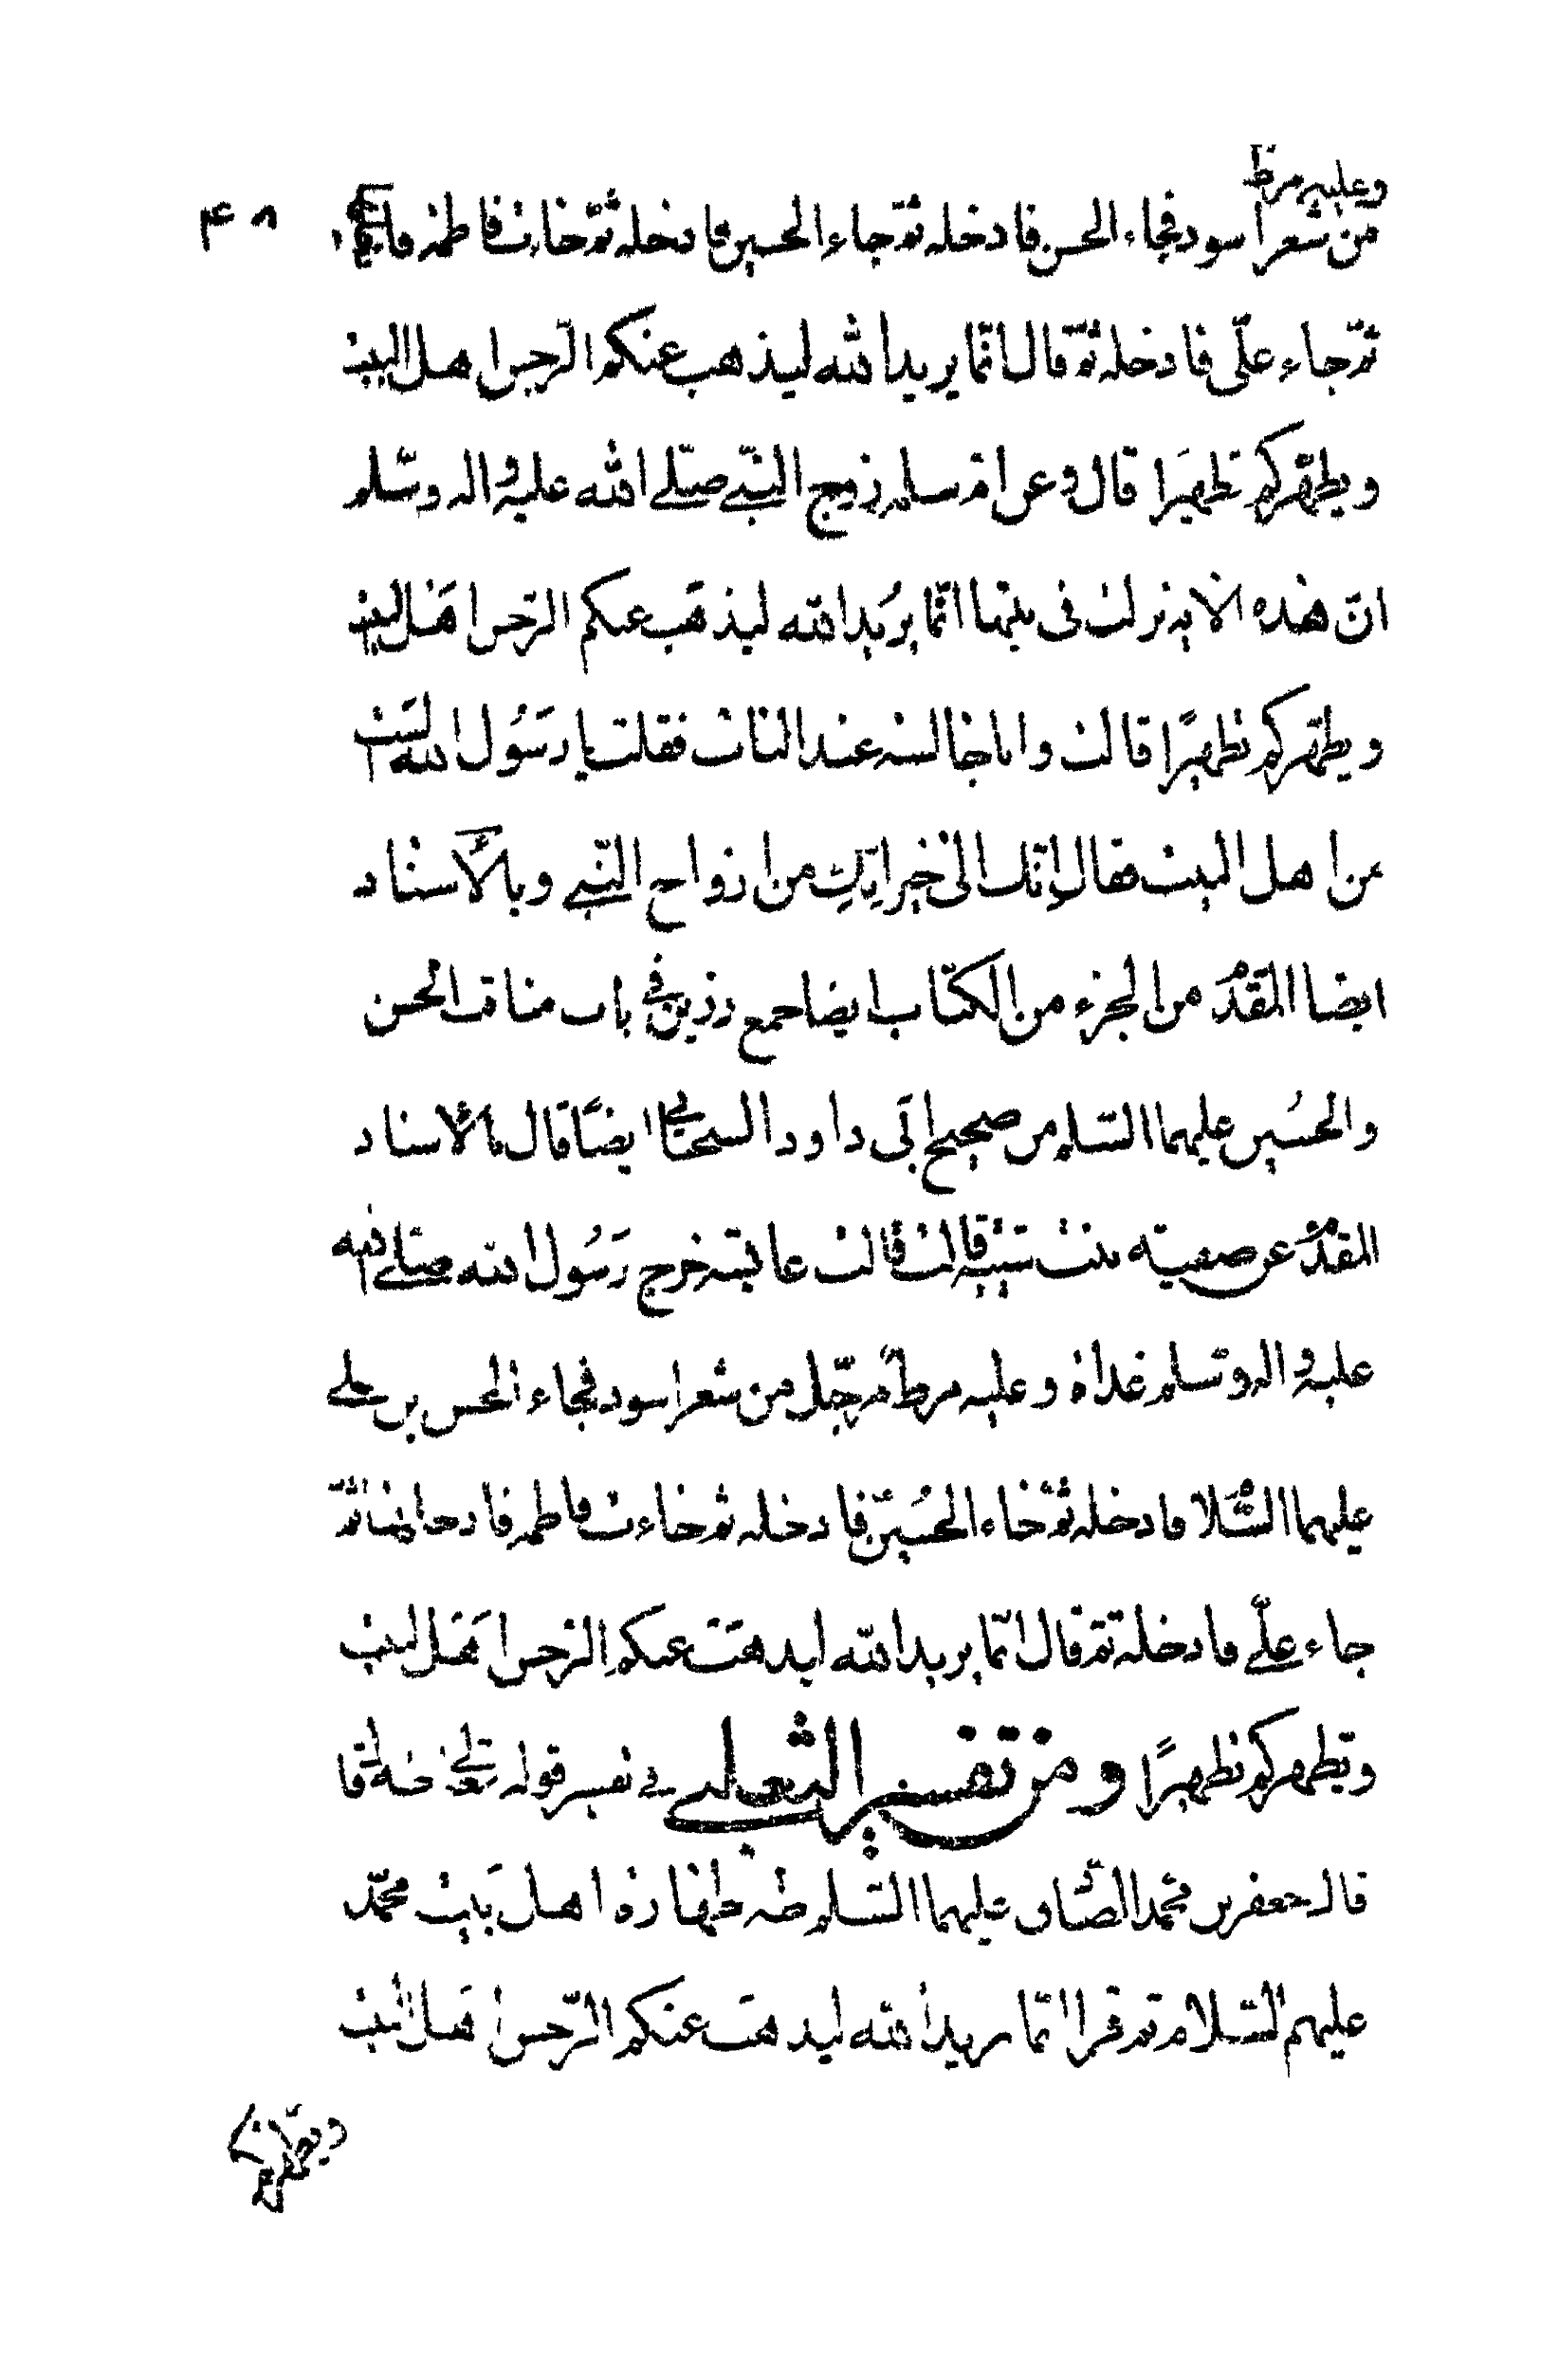 وعليه مرط
من شعر اسود فجاء الحسن فادخله ثم جاء الحسين فادخله ثم جاءت فاطمة فادخلها ۴۸
ثم جاء علّى فادخله ثم قال انّما يريد الله ليذهب عنكم الرّجس اهل البيت
ويطهّركم تطهيرا قال وعن ام سلمه زوج النبّي صلّى الله عليه واله وسلّم
انّ هذه الايه نزلت فى بيتها انّما يريد الله ليذهب عنكم الرّجس اهل البيت
ويطهركم تطهيرًا قالت وانا جالسه عند الباب فقلت يا رسُول الله الست
من اهل البيت فقال انّك الى خير انّكِ من ازواج النّبى وبالأسناد
ايضا المقدّم من الجزء من الكتاب ايضا جمع رزين فى باب مناقب الحسن
والحسُين عليهما السّلم من صحيح ابى داود السجستانى ايضًا قال بالاسناد
المقدّم عن صفيّه بنت شيبه قالت قالت عايشه خرج رسُول الله صلّى الله
عليه واله وسلم غداة وعليه مرط مرجّل من شعر اسود فجاء الحسن بن على
عليهما السّلام فادخله ثم جاء الحسُين فادخله ثم جاءت فاطمه فادخلها ثمّ
جاء علّى فادخله ثم قال انّما يريد الله ليذهب عنكم الرجس اهل البيت
ويطهركم تطهيرًا ومن تفسير الثعلبى فى تفسير قوله تعالى طه قا
قال جعفر بن محمد الصّادق عليهما السّلم طه طهارة اهل بيت محمّد
عليهم السّلام ثم قرا انّما يريد الله ليذهب عنكم الرّجس اهل البيت
ويطهركم